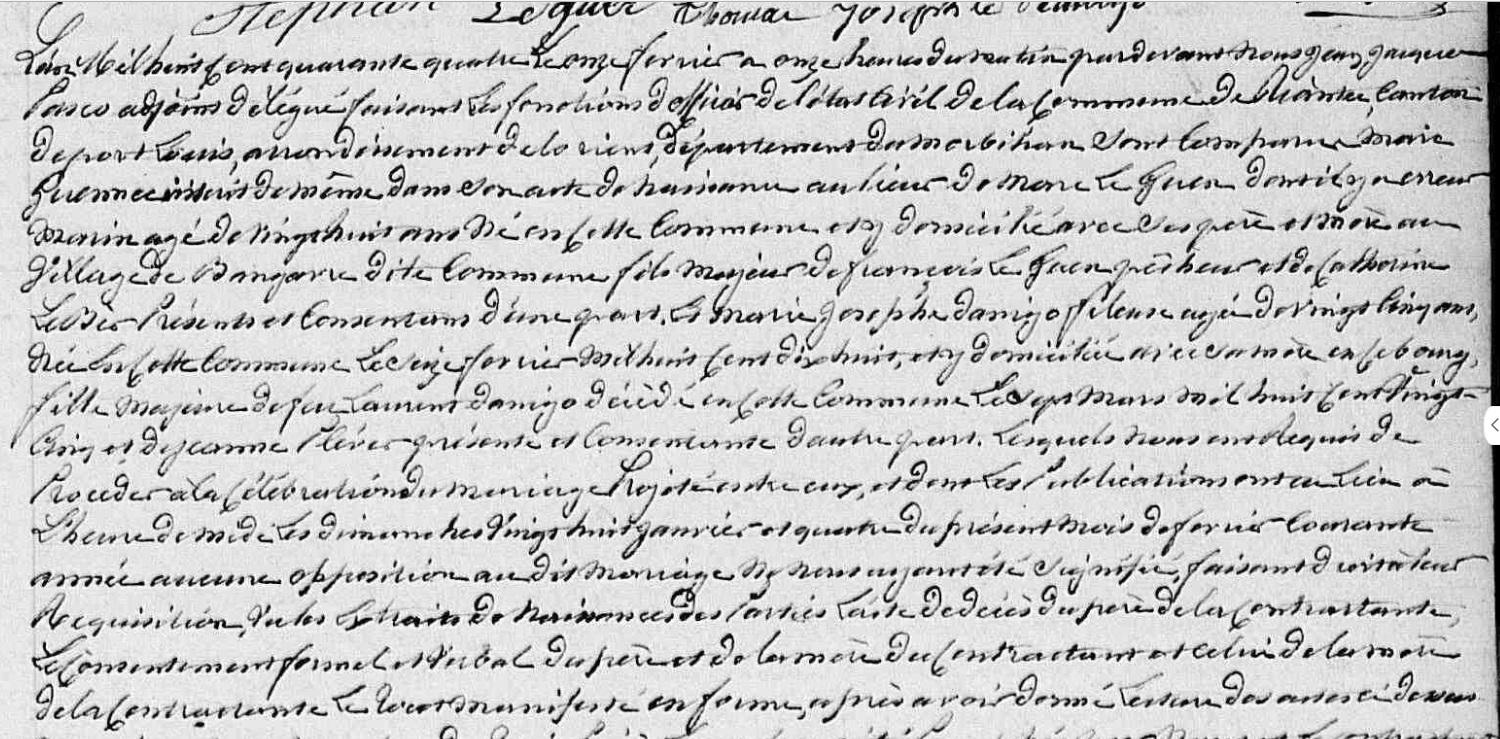 Stephan Leguer Thomas Joseph le
L'an Mil huit Cent quarante quatre Le onze fevrier a onze heures du matin par devant Nous Jean Jacques
Pasco adjoint délégué faisant Les fonctions d'officier de l'état Civil de la Commune de Riantec, Canton
de port Louis, arrondissement de lorient, département du morbihan Sont Comparus Marc
Guennec inscrit de même dans Son acte de Naissance au lieu de Marc Le Guen dont il y a erreur
Marin agé de Vingt huit ans Né en Cette Commune et y domicilié avec Ses père et Mère au
Village de Bangavre dite Commune fils Majeur de françois Le Guen pêcheur et de Catherine
Le Bér Présents et Consentans d'une part. Et Marie Josephe danigo fileuse agée de Vingt Cinq ans,
Née En Cette Commune Le Seize fevrier Mil huit Cent dix huit, et y domiciliée avec Sa mère en Ce bourg,
fille Majeure de feu Laurent danigo décédé en Cette Commune Le Sept Mars Mil huit Cent Vingt
Cinq et de Jeanne présente et Consentante d'autre part. Lesquels Nous ont Requis de
Procéder à la Célébration du Mariage Projeté entre eux, et dont Les Publications ont eu Lieu à
L'heure de midi Les dimanches Vingt huit Janvier et quatre du présent Mois de fevrier Courante
année aucune opposition au dit Mariage Ne Nous ayant été Signifiée, faisant droit à leur
Requisition, Vu les Extraits de Naissances des Parties L'acte de décès du père de la Contractante,
Le Consentement formel et Verbal du père et de la mère du Contractant et Celui de la mère
de la Contractante Le tout Manifesté en forme, après avoir donné Lecture des actes ci dessus